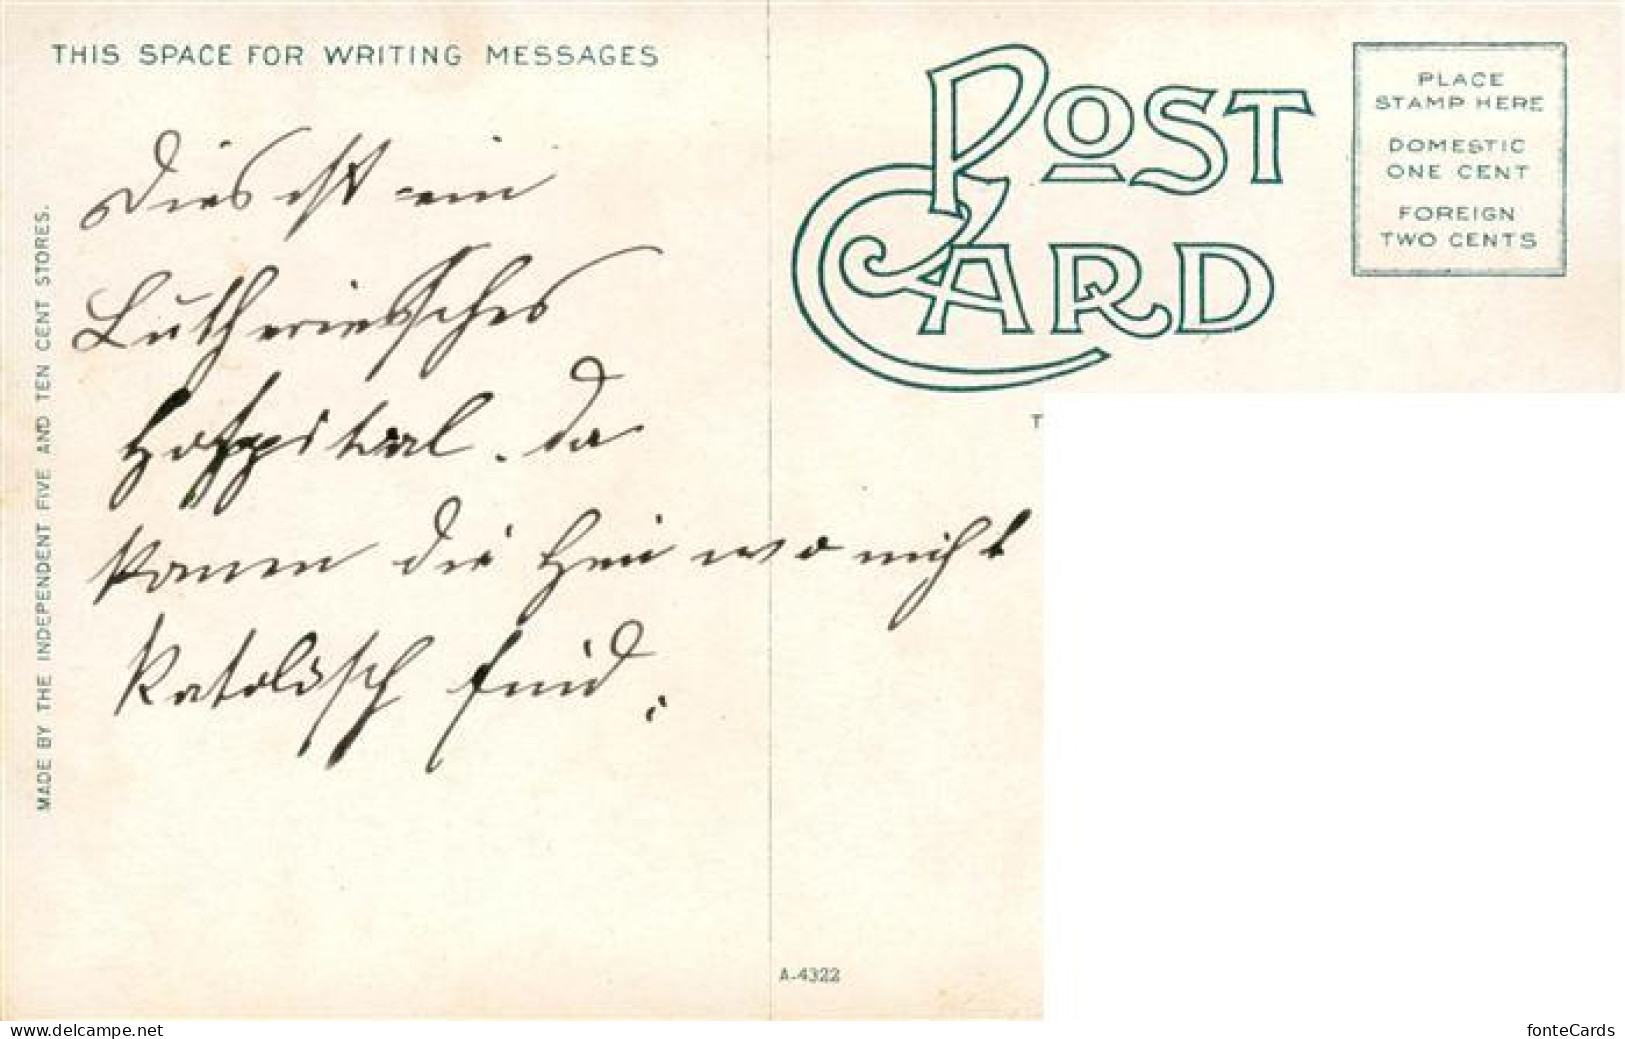 THIS SPACE FOR WRITING MESSAGES
Dies ist ein
Lutherinisches
Hospital. da
kamen die hin wo nicht
Katolisch sind.
MADE BY THE INDEPENDENT FIVE AND TEN CENT STORES.
POST
CARD
PLACE
STAMP HERE
DOMESTIC
ONE CENT
FOREIGN
TWO CENTS
T
A-4322
www.delcampe.net
fonteCards